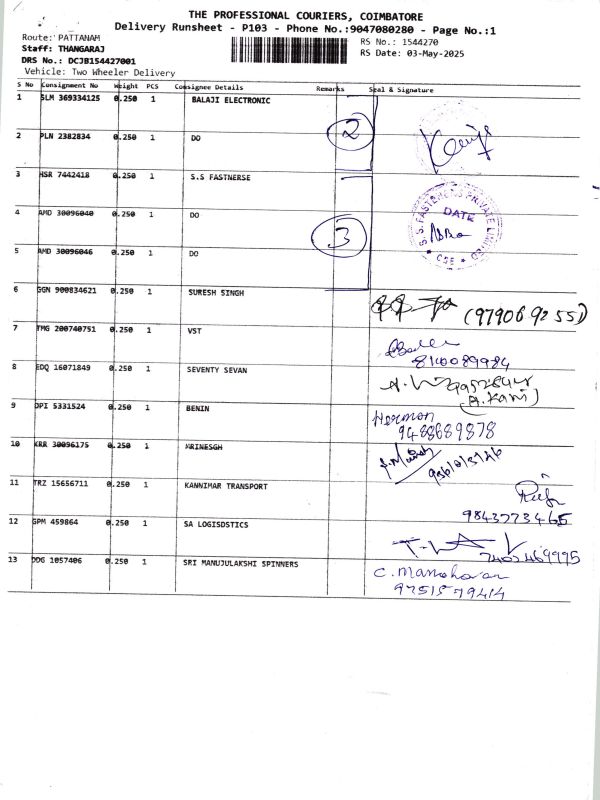 THE PROFESSIONAL COURIERS, COIMBATORE
Delivery Runsheet - P103 - Phone No.:9047080280 - Page No.:1
Route: PATTANAM
RS No.: 1544270
Staff: THANGARAJ
RS Date: 03-May-2025
DRS No.: DCJB154427001
Vehicle: Two Wheeler Delivery
S No Consignment No Weight PCS Consignee Details Remarks Seal & Signature
1 SLM 369334125 0.250 1 BALAJI ELECTRONIC
2
2 PLN 2382834 0.250 1 DO
3 HSR 7442418 0.250 1 S.S FASTNERSE
S.S. FASTENERS PRIVATE LIMITED
DATE
4 AMD 30096040 0.250 1 DO
3
5 AMD 30096046 0.250 1 DO
6 GGN 900834621 0.250 1 SURESH SINGH
7 TMG 200740751 0.250 1 VST
8 EDQ 16071849 0.250 1 SEVENTY SEVAN
(A. Kani)
9 DPI 5331524 0.250 1 BENIN
Herman
9488689878
10 KRR 30096175 0.250 1 MRINESGH
11 TRZ 15656711 0.250 1 KANNIMAR TRANSPORT
9843773465
12 GPM 459864 0.250 1 SA LOGISDSTICS
7402469995
13 DDG 1057406 0.250 1 SRI MANUJULAKSHI SPINNERS
C. Manoharan
9751579414